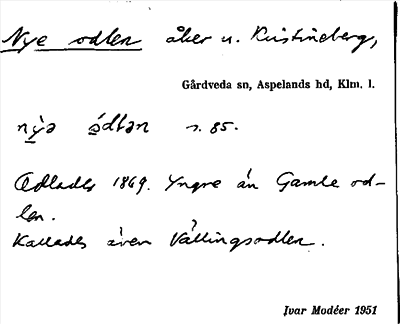 Nye odlen åker u. Kristineberg,
Gårdveda sn, Aspelands hd, Klm. l.
nỳə ódlən s. 85.
Odlades 1869. Yngre än Gamle od-
len.
Kallades även Vällingsodlen.
Ivar Modéer 1951